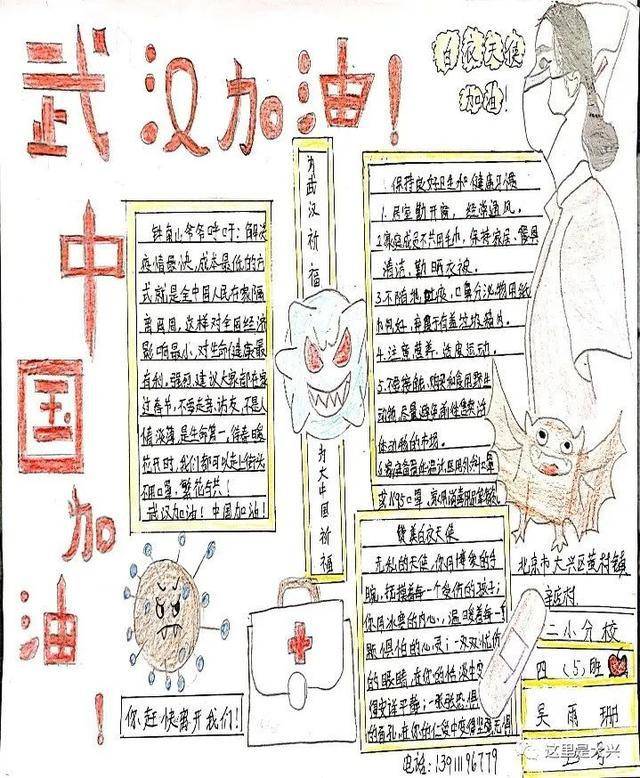 武汉加油!
白衣天使
加油!
中国加油!
为武汉祈福
为大中国祈福
钟南山爷爷呼吁:解决
疫情最快,成本最低的方
式就是全中国人民在家隔
离两周,这样对全国经济
影响最小,对生命健康最
有利。强烈建议大家都在家
过春节,不要走亲访友,不是人
情淡薄,是生命第一,待春暖
花开时,我们都可以走上街头
不用口罩,繁花与共!
武汉加油!中国加油!
保持良好卫生和健康习惯
1.居室勤开窗,经常通风。
2.家庭成员不共用毛巾,保持家居、餐具
清洁,勤晒衣被。
3.不随地吐痰,口鼻分泌物用纸
巾包好,弃置于有盖垃圾箱内。
4.注重营养,适度运动。
5.不要接触、购买和食用野生
动物,尽量避免前往售卖活
体动物的市场。
6.家庭备置体温计、医用外科口罩
或N95口罩、家用消毒用品等物资
赞美白衣天使
无私的天使,你用博爱的臂
腕,抚摸着每一个受伤的孩子;
你用冰雪的内心,温暖着每一
颗惧怕的心灵;一双双忧伤
的眼睛,在你的
得安详平静;一张张恐惧
的面孔,在你的仁慈中变得坚强无惧
你赶快离开我们!
北京市大兴区黄村镇
二小分校
四(5)班
吴雨珊
电话:13911196779
这里是大兴